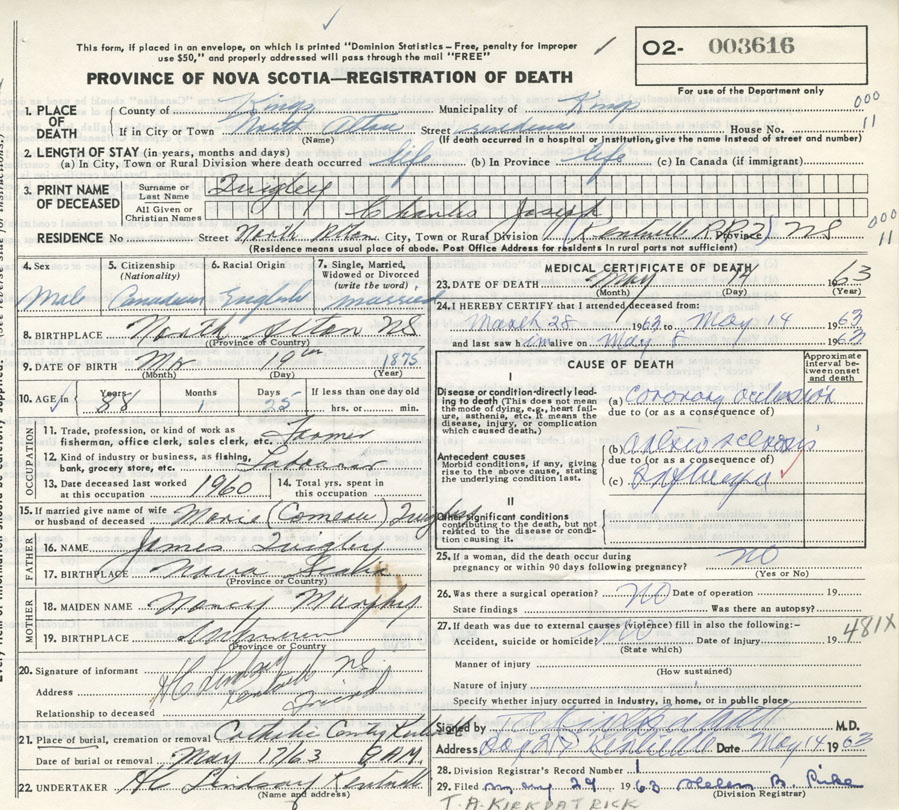 This form, if placed in an envelope, on which is printed "Dominion Statistics – Free, penalty for improper
use $50," and properly addressed will pass through the mail "FREE"
PROVINCE OF NOVA SCOTIA—REGISTRATION OF DEATH
O2- 003616
For use of the Department only
1. PLACE OF DEATH County of Kings Municipality of Kings 000
If in City or Town North Alton Street House No. 11
(Name) (If death occurred in a hospital or institution, give the name instead of street and number)
2. LENGTH OF STAY (in years, months and days)
(a) In City, Town or Rural Division where death occurred life (b) In Province life (c) In Canada (if immigrant)
3. PRINT NAME OF DECEASED Surname or Last Name Quigley
All Given or Christian Names Charles Joseph
RESIDENCE No Street North Alton City, Town or Rural Division (Kentville R.R.2) Province NS 000 11
(Residence means usual place of abode. Post Office Address for residents in rural parts not sufficient)
4. Sex Male
5. Citizenship (Nationality) Canadian
6. Racial Origin English
7. Single, Married, Widowed or Divorced (write the word) married
8. BIRTHPLACE North Alton NS
(Province or Country)
9. DATE OF BIRTH 19th 1875
(Month) (Day) (Year)
10. AGE in Years 88 Months 1 Days 25 If less than one day old hrs. or min.
OCCUPATION
11. Trade, profession, or kind of work as fisherman, office clerk, sales clerk, etc. Farmer
12. Kind of industry or business, as fishing, bank, grocery store, etc. Labourer
13. Date deceased last worked at this occupation 1960
14. Total yrs. spent in this occupation
15. If married give name of wife or husband of deceased Marie (Comeau) Quigley
FATHER
16. NAME James Quigley
17. BIRTHPLACE Nova Scotia
(Province or Country)
MOTHER
18. MAIDEN NAME Nancy Murphy
19. BIRTHPLACE Unknown
(Province or Country
20. Signature of informant H C Lindsay
Address Kentville NS
Relationship to deceased Friend
21. Place of burial, cremation or removal Catholic Kentville
Date of burial or removal May 17/63 8 A.M.
22. UNDERTAKER H C Lindsay Kentville
(Name and address)
MEDICAL CERTIFICATE OF DEATH
23. DATE OF DEATH May 14 1963
(Month) (Day) (Year)
24. I HEREBY CERTIFY that I attended deceased from:
March 28 1963 to May 14 1963
and last saw him alive on May 8 1963
CAUSE OF DEATH
Approximate interval between onset and death
I
Disease or condition directly leading to death (This does not mean the mode of dying, e.g., heart failure, asthenia, etc. It means the disease, injury, or complication which caused death.)
(a) Coronary occlusion
due to (or as a consequence of)
Antecedent causes
Morbid conditions, if any, giving rise to the above cause, stating the underlying condition last.
(b) arteriosclerosis
due to (or as a consequence of)
(c) Influenza
II
Other significant conditions
contributing to the death, but not related to the disease or condition causing it.
25. If a woman, did the death occur during pregnancy or within 90 days following pregnancy? NO
(Yes or No)
26. Was there a surgical operation? NO Date of operation 19
State findings Was there an autopsy?
27. If death was due to external causes (violence) fill in also the following:–
Accident, suicide or homicide? NO Date of injury 19 481X
(State which)
Manner of injury
(How sustained)
Nature of injury
Specify whether injury occurred in industry, in home, or in public place
Signed by T A Kirkpatrick M.D.
Address Kentville Date May 14 1963
28. Division Registrar's Record Number 1
29. Filed May 29 1963 Helen B.
(Division Registrar)
T. A. KIRKPATRICK